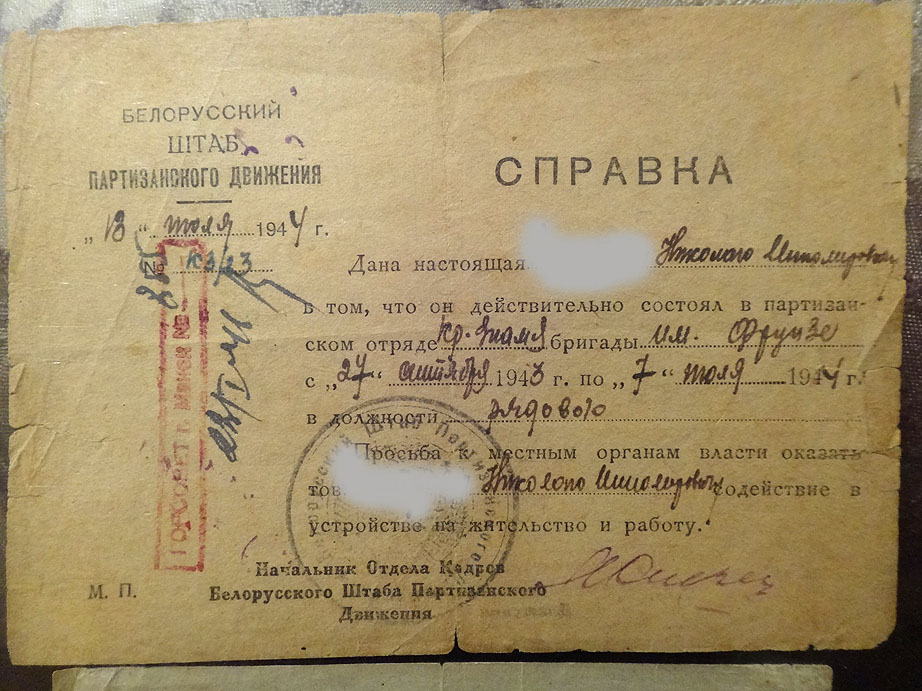 БЕЛОРУССКИЙ
ШТАБ
ПАРТИЗАНСКОГО ДВИЖЕНИЯ
„13" июля 1944 г.
№
ГОРСОВЕТ г. МИНСК №
СПРАВКА
Дана настоящая Николаю
в том, что он действительно состоял в партизан-
ском отряде Кр. Знамя бригады им. Фрунзе
с „27" сентября 1943 г. по „7" июля 1944 г.
в должности рядового
Просьба к местным органам власти оказать
тов. Николаю содействие в
устройстве на жительство и работу.
Начальник Отдела Кадров
Белорусского Штаба Партизанского
Движения
М. П.
Штаб Партизанского